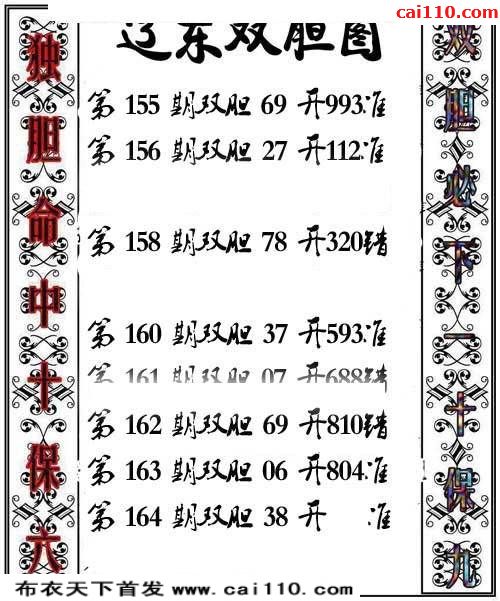 cai110.com
辽东双胆图
独胆命中十保六
第 155 期双胆 69 开993准
第 156 期双胆 27 开112准
第 158 期双胆 78 开320错
第 160 期双胆 37 开593准
第 161 期双胆 07 开688错
第 162 期双胆 69 开810错
第 163 期双胆 06 开804准
第 164 期双胆 38 开 准
双胆必下一十保九
布衣天下首发 www.cai110.com